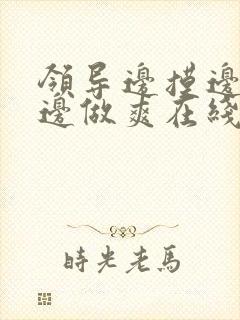 領导邊摸邊
邊做爽在綫
時光老馬